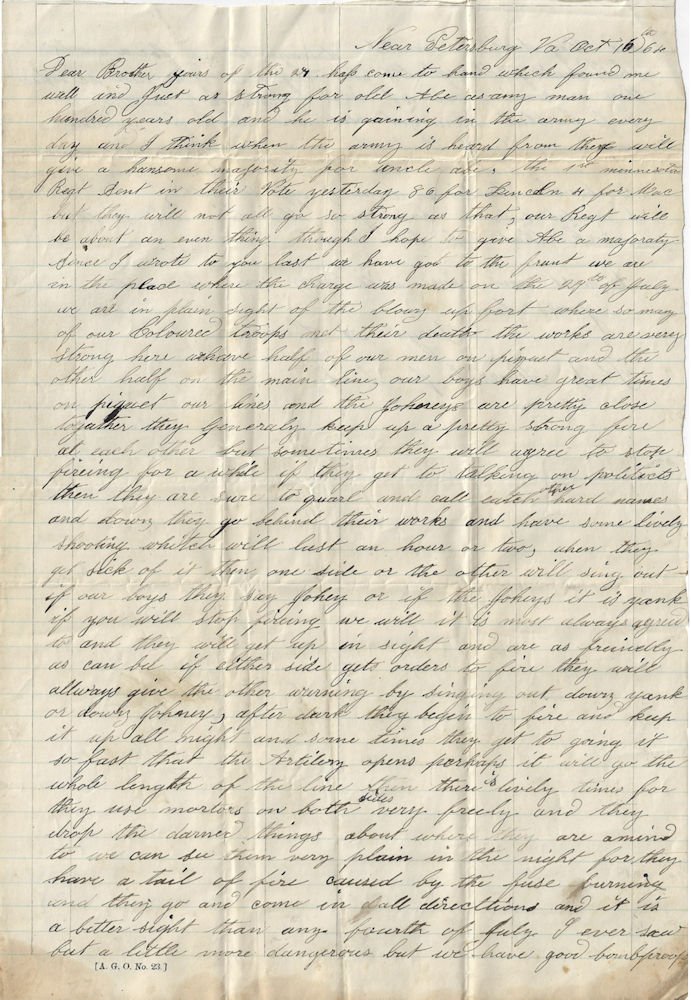 Near Petersburg Va Oct 16th/64
Dear Brother yours of the 24 has come to hand which found me
well and Just as strong for old Abe as any man one
hundred years old and he is gaining in the army every
day and I think when the army is heard from they will
give a hansome majority for uncle abe. the 1st minnesota
Regt Sent in their Vote yesterday 86 for Lincoln 4 for Mac
but they will not all go so strong as that, our Regt will
be about an even thing though I hope to give Abe a majoraty
Since I wrote to you last we have got to the front we are
in the place where the charge was made on the 29th of July
we are in plain sight of the blown up fort where so many
of our Coloured troops met their death the works are very
strong here we have half of our men on piquet and the
other half on the main line, our boys have great times
on piquet our lines and the Johneys are pretty close
together they Generaly keep up a pretty strong fire
at each other but sometimes they will agree to stop
fireing for a while if they get to talking on politicts
then they are sure to quarl and call eatch other hard names
and down they go behind their works and have some lively
shooting whitch will last an hour or two, when they
get sick of it then one side or the other will sing out
if our boys they say Johey or if the Joheys it is yank
if you will stop fireing we will it is most always agreed
to and they will get up in sight and are as freindly
as can be if either side gets orders to fire they will
allways give the other warning by singing out down yank
or down Johney, after dark they begin to fire and keep
it up all night and some times they get to going it
so fast that the Artilery opens perhaps it will go the
whole length of the line then there is lively times for
they use mortors on both sides very freely and they
drop the darned things about where they are a mind
to we can see them very plain in the night for they
have a tail of fire caused by the fuse burning
and they go and come in all directtions and it is
a better sight than any fourth of July I ever saw
but a little more dangerous but we have good bombproofs
[A. G. O. No. 23.]